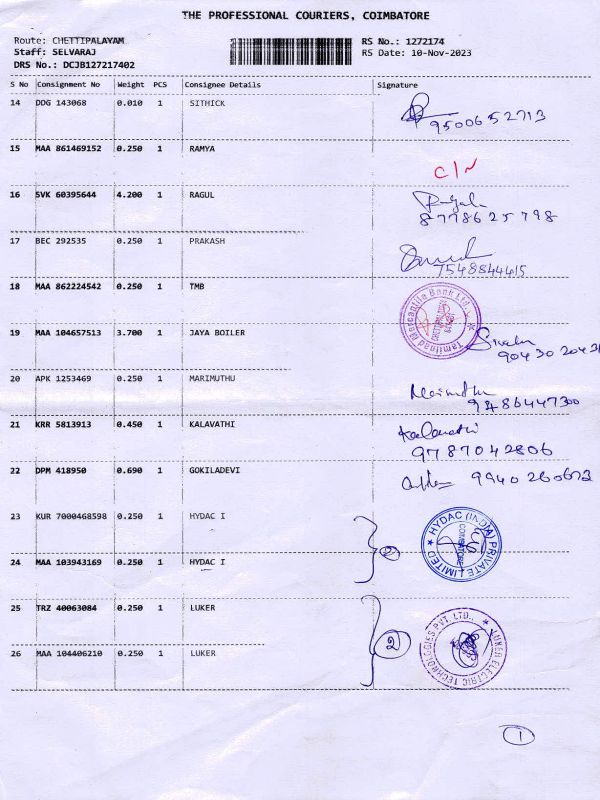 THE PROFESSIONAL COURIERS, COIMBATORE
Route: CHETTIPALAYAM
Staff: SELVARAJ
DRS No.: DCJB127217402
RS No.: 1272174
RS Date: 10-Nov-2023
S No Consignment No Weight PCS Consignee Details Signature
14 DDG 143068 0.010 1 SITHICK
9500652713
15 MAA 861469152 0.250 1 RAMYA
C/N
16 SVK 60395644 4.200 1 RAGUL
8778625798
17 BEC 292535 0.250 1 PRAKASH
7548844415
18 MAA 862224542 0.250 1 TMB
Tamilnad Mercantile Bank Ltd.
19 MAA 104657513 3.700 1 JAYA BOILER
20 APK 1253469 0.250 1 MARIMUTHU
Marimuthu
21 KRR 5813913 0.450 1 KALAVATHI
Kalavathi
9787042806
22 DPM 418950 0.690 1 GOKILADEVI
9940260673
23 KUR 7000468598 0.250 1 HYDAC I
24 MAA 103943169 0.250 1 HYDAC I
2
HYDAC (INDIA) PRIVATE LIMITED
COIMBATORE
25 TRZ 40063084 0.250 1 LUKER
26 MAA 104406210 0.250 1 LUKER
2
LUKER ELECTRIC TECHNOLOGIES PVT. LTD.,
1